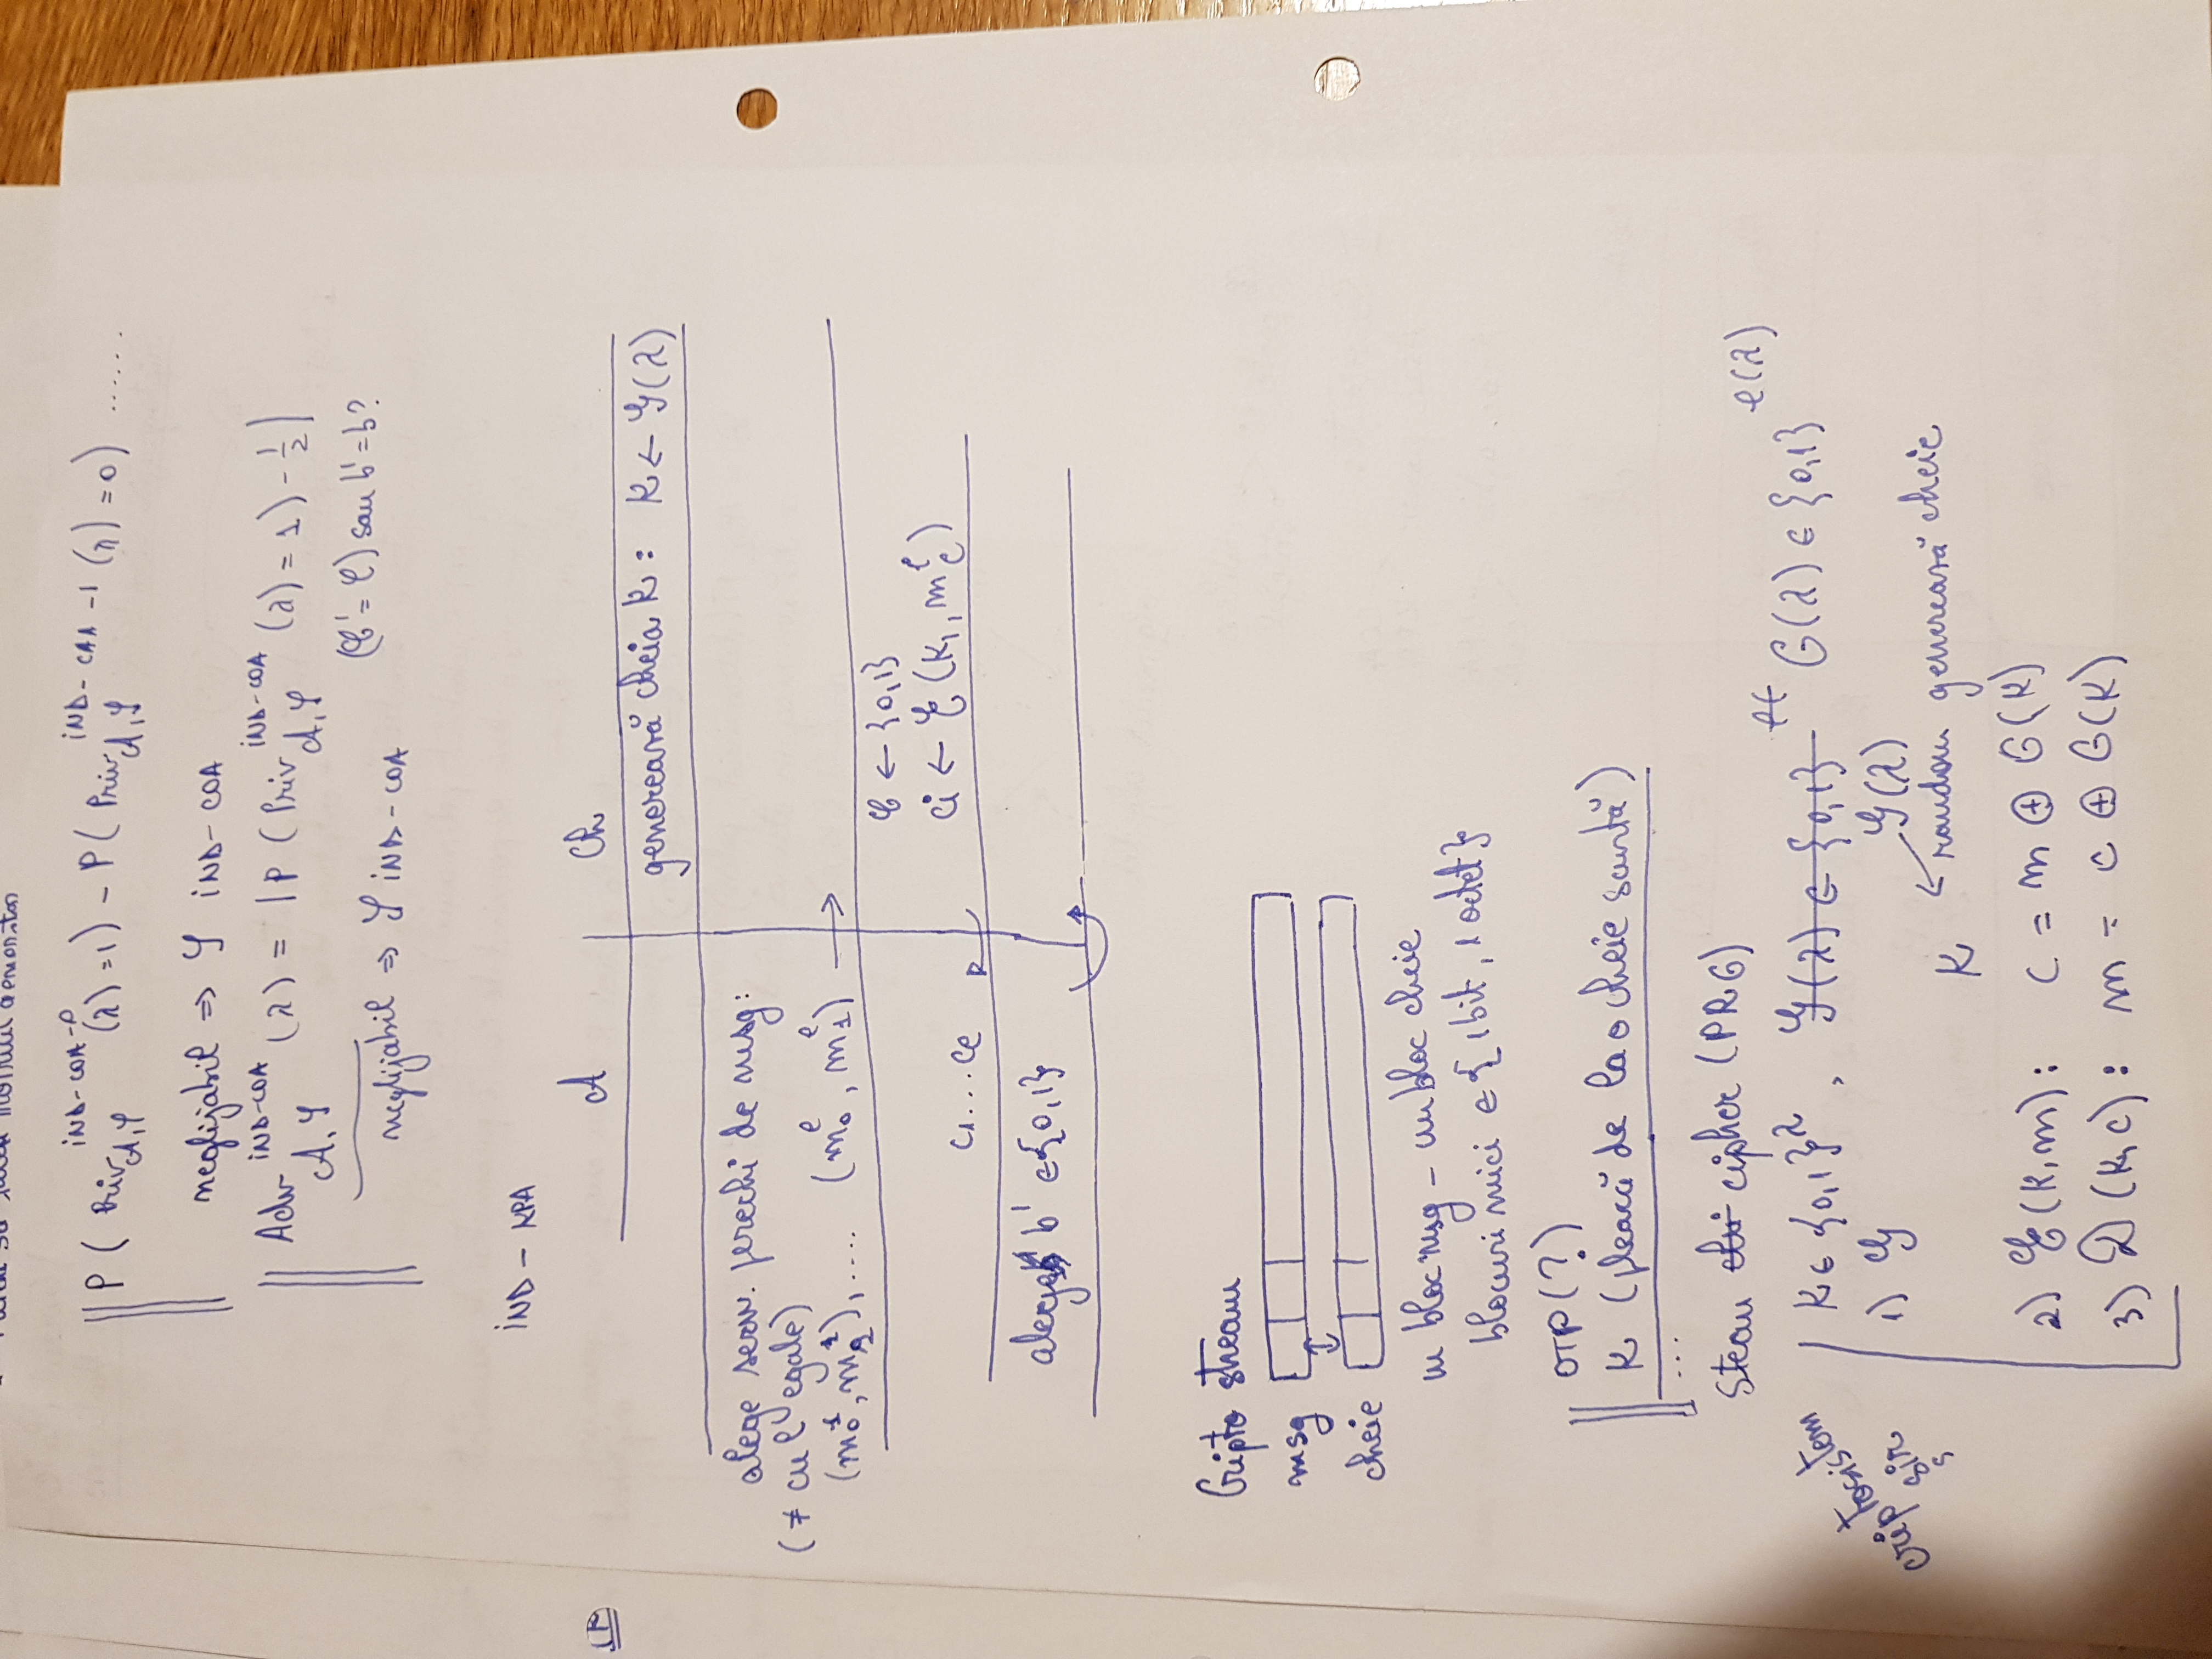 P ( Priv_{A,S}^{IND-COA-0} (λ) = 1) - P ( Priv_{A,S}^{IND-CAA-1} (λ) = 0) ......
neglijabil ⇒ S IND-COA
Adv_{A,S}^{IND-COA} (λ) = | P ( Priv_{A,S}^{IND-COA} (λ) = 1) - 1/2 |
(b' = b) sau b' = b?
neglijabil ⇒ S IND-COA
IND - KPA
A Ch
generează cheia K : K ← G(λ)
alege secv. perechi de msg:
(≠ cu l egale)
(m_0^1, m_1^1), .... (m_0^l, m_1^l) →
b ← {0,1}
ci ← E (K, m_c^i)
c1...cl
alege b' ∈ {0,1}
Cripto stream
msg
cheie
un bloc msg - un bloc cheie
blocuri mici ∈ { 1 bit, 1 octet }
OTP (?)
K (pleacă de la o cheie scurtă)
...
Steam cipher (PRG)
criptosistem
șir
K ∈ {0,1}^λ , G(λ) ∈ {0,1} G(λ) ∈ {0,1}^{l(λ)}
1) G G(λ)
K ← random generează cheie
2) E (K, m) : c = m ⊕ G(K)
3) D (K, c) : m = c ⊕ G(K)